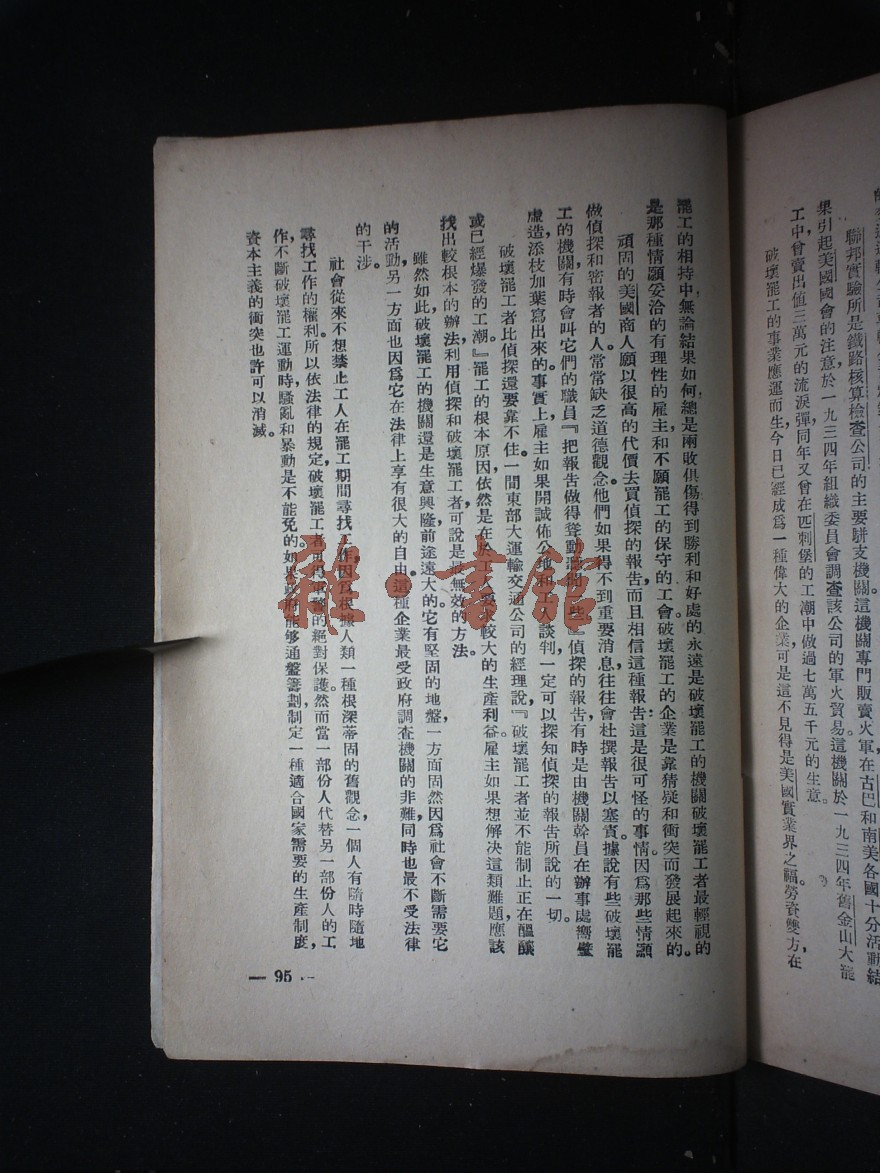 聯邦實驗所是鐵路核算檢查公司的主要駢支機關這機關專門販賣火軍在古巴和南美各國十分活動結
果引起美國國會的注意於一九三四年組織委員會調查該公司的軍火貿易這機關於一九三四年舊金山大罷
工中曾賣出值三萬元的流淚彈同年又曾在匹刺堡的工潮中做過七萬五千元的生意。
破壞罷工的事業應運而生今日已經成為一種偉大的企業可是這不見得是美國實業界之福勞資雙方在
罷工的相持中無論結果如何總是兩敗俱傷得到勝利和好處的永遠是破壞罷工的機關破壞罷工者最輕視的
是那種情願妥洽的有理性的雇主和不願罷工的保守的工會破壞罷工的企業是靠猜疑和衝突而發展起來的。
頑固的美國商人願以很高的代價去買偵探的報告而且相信這種報告這是很可怪的事情因爲那些情願
做偵探和密報者的人常常缺乏道德觀念他們如果得不到重要消息往往會杜撰報告以塞責據說有些破壞罷
工的機關有時會叫它們的職員『把報告做得聳動聽聞一些』偵探的報告有時是由機關幹員在辦事處嚮壁
虛造添枝加葉寫出來的事實上雇主如果開誠佈公地和工人談判一定可以探知偵探的報告所說的一切。
破壞罷工者比偵探還要靠不住一間東部大運輸交通公司的經理說『破壞罷工者並不能制止正在醞釀
或已經爆發的工潮』罷工的根本原因依然是在於工人要求較大的生產利益雇主如果想解決這類難題應該
找出較根本的辦法利用偵探和破壞罷工者可說是最無效的方法。
雖然如此破壞罷工的機關還是生意興隆前途遠大的它有堅固的地盤一方面固然因爲社會不斷需要它
的活動另一方面也因爲它在法律上享有很大的自由這種企業最受政府調查機關的非難同時也最不受法律
的干涉。
社會從來不想禁止工人在罷工期間尋找工作因爲根據人類一種根深蒂固的舊觀念一個人有隨時隨地
尋找工作的權利所以依法律的規定破壞罷工者可得軍警的絕對保護然而當一部份人代替另一部份人的工
作，不斷破壞罷工運動時騷亂和暴動是不能免的如果政府能够通盤籌劃制定一種適合國家需要的生產制度，
資本主義的衝突也許可以消滅。
— 95 —
雅·書館